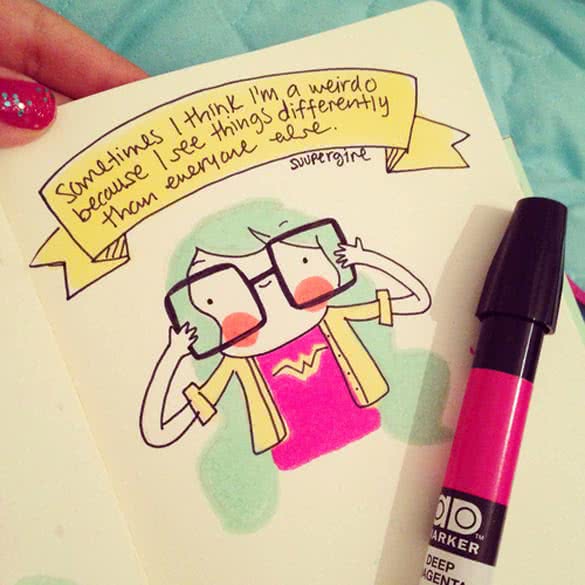 Sometimes I think I'm a weirdo
because I see things differently
than everyone else.
suupergirl
W
AD
MARKER
DEEP
MAGENTA